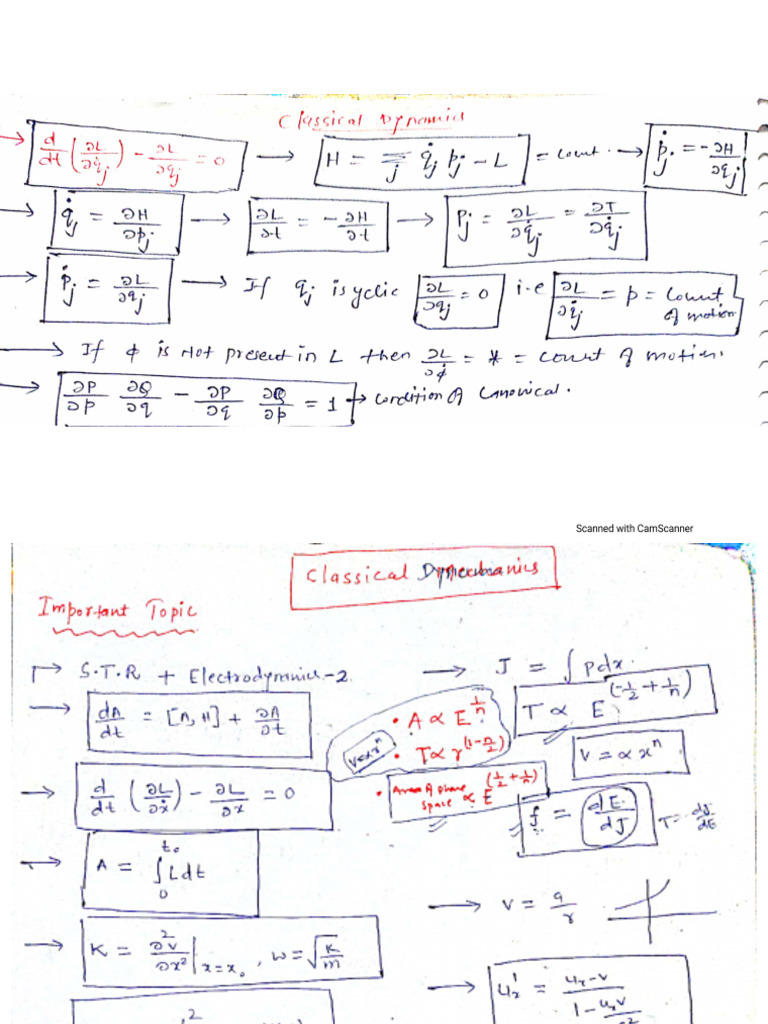 Classical Dynamics
→ d/dt (∂L/∂q̇j) - ∂L/∂qj = 0 → H = Σj q̇j pj - L = const. → ṗj = -∂H/∂qj
→ q̇j = ∂H/∂pj → ∂L/∂t = -∂H/∂t → Pj = ∂L/∂q̇j = ∂T/∂q̇j
→ ṗj = ∂L/∂qj → If qj is cyclic ∂L/∂qj = 0 i.e ∂L/∂q̇j = p = const of motion
→ If ϕ is not present in L then ∂L/∂ϕ̇ = * = const of motion.
→ ∂P/∂p ∂Q/∂q - ∂P/∂q ∂Q/∂p = 1 → condition of canonical.
Scanned with CamScanner
Classical
Important Topic
→ S.T.R + Electrodynamics-2
→ J = ∫ p dx
→ dA/dt = [A, H] + ∂A/∂t
• A ∝ E^(1/n)
T ∝ E^(-1/2 + 1/n)
V ∝ x^n
• T ∝ r^(1-n/2)
V = αx^n
→ d/dt (∂L/∂ẋ) - ∂L/∂x = 0
• Area of phase space ∝ E^(1/2 + 1/n)
f = dE/dJ T = dJ/dE
→ A = ∫₀^t₀ L dt
→ V = a/r
→ K = ∂²V/∂x² |x=x₀, ω = √(K/m)
→ u'x = (ux - v)/(1 - uxv/c²)